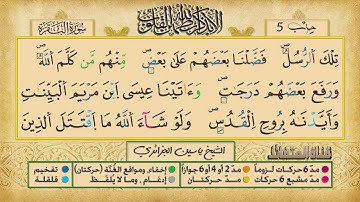 حزب 5
ألا بذكر الله تطمئن القلوب
سورة البقرة
تِلْكَ ٱلرُّسُلُ فَضَّلْنَا بَعْضَهُمْ عَلَىٰ بَعْضٍ مِّنْهُم مَّن كَلَّمَ ٱللَّهُ
وَرَفَعَ بَعْضَهُمْ دَرَجَٰتٍ وَءَاتَيْنَا عِيسَى ٱبْنَ مَرْيَمَ ٱلْبَيِّنَٰتِ
وَأَيَّدْنَٰهُ بِرُوحِ ٱلْقُدُسِ وَلَوْ شَآءَ ٱللَّهُ مَا ٱقْتَتَلَ ٱلَّذِينَ
الشيخ ياسين الجزائري
مدّ 6 حركات لزوماً مدّ 2 أو 4 أو 6 جوازاً إخفاء، ومواقع الغُنَّة (حركتان) تفخيم
مدّ مشبع 6 حركات مدّ حركتان إدغام، وما لا يُلفَظ قلقلة